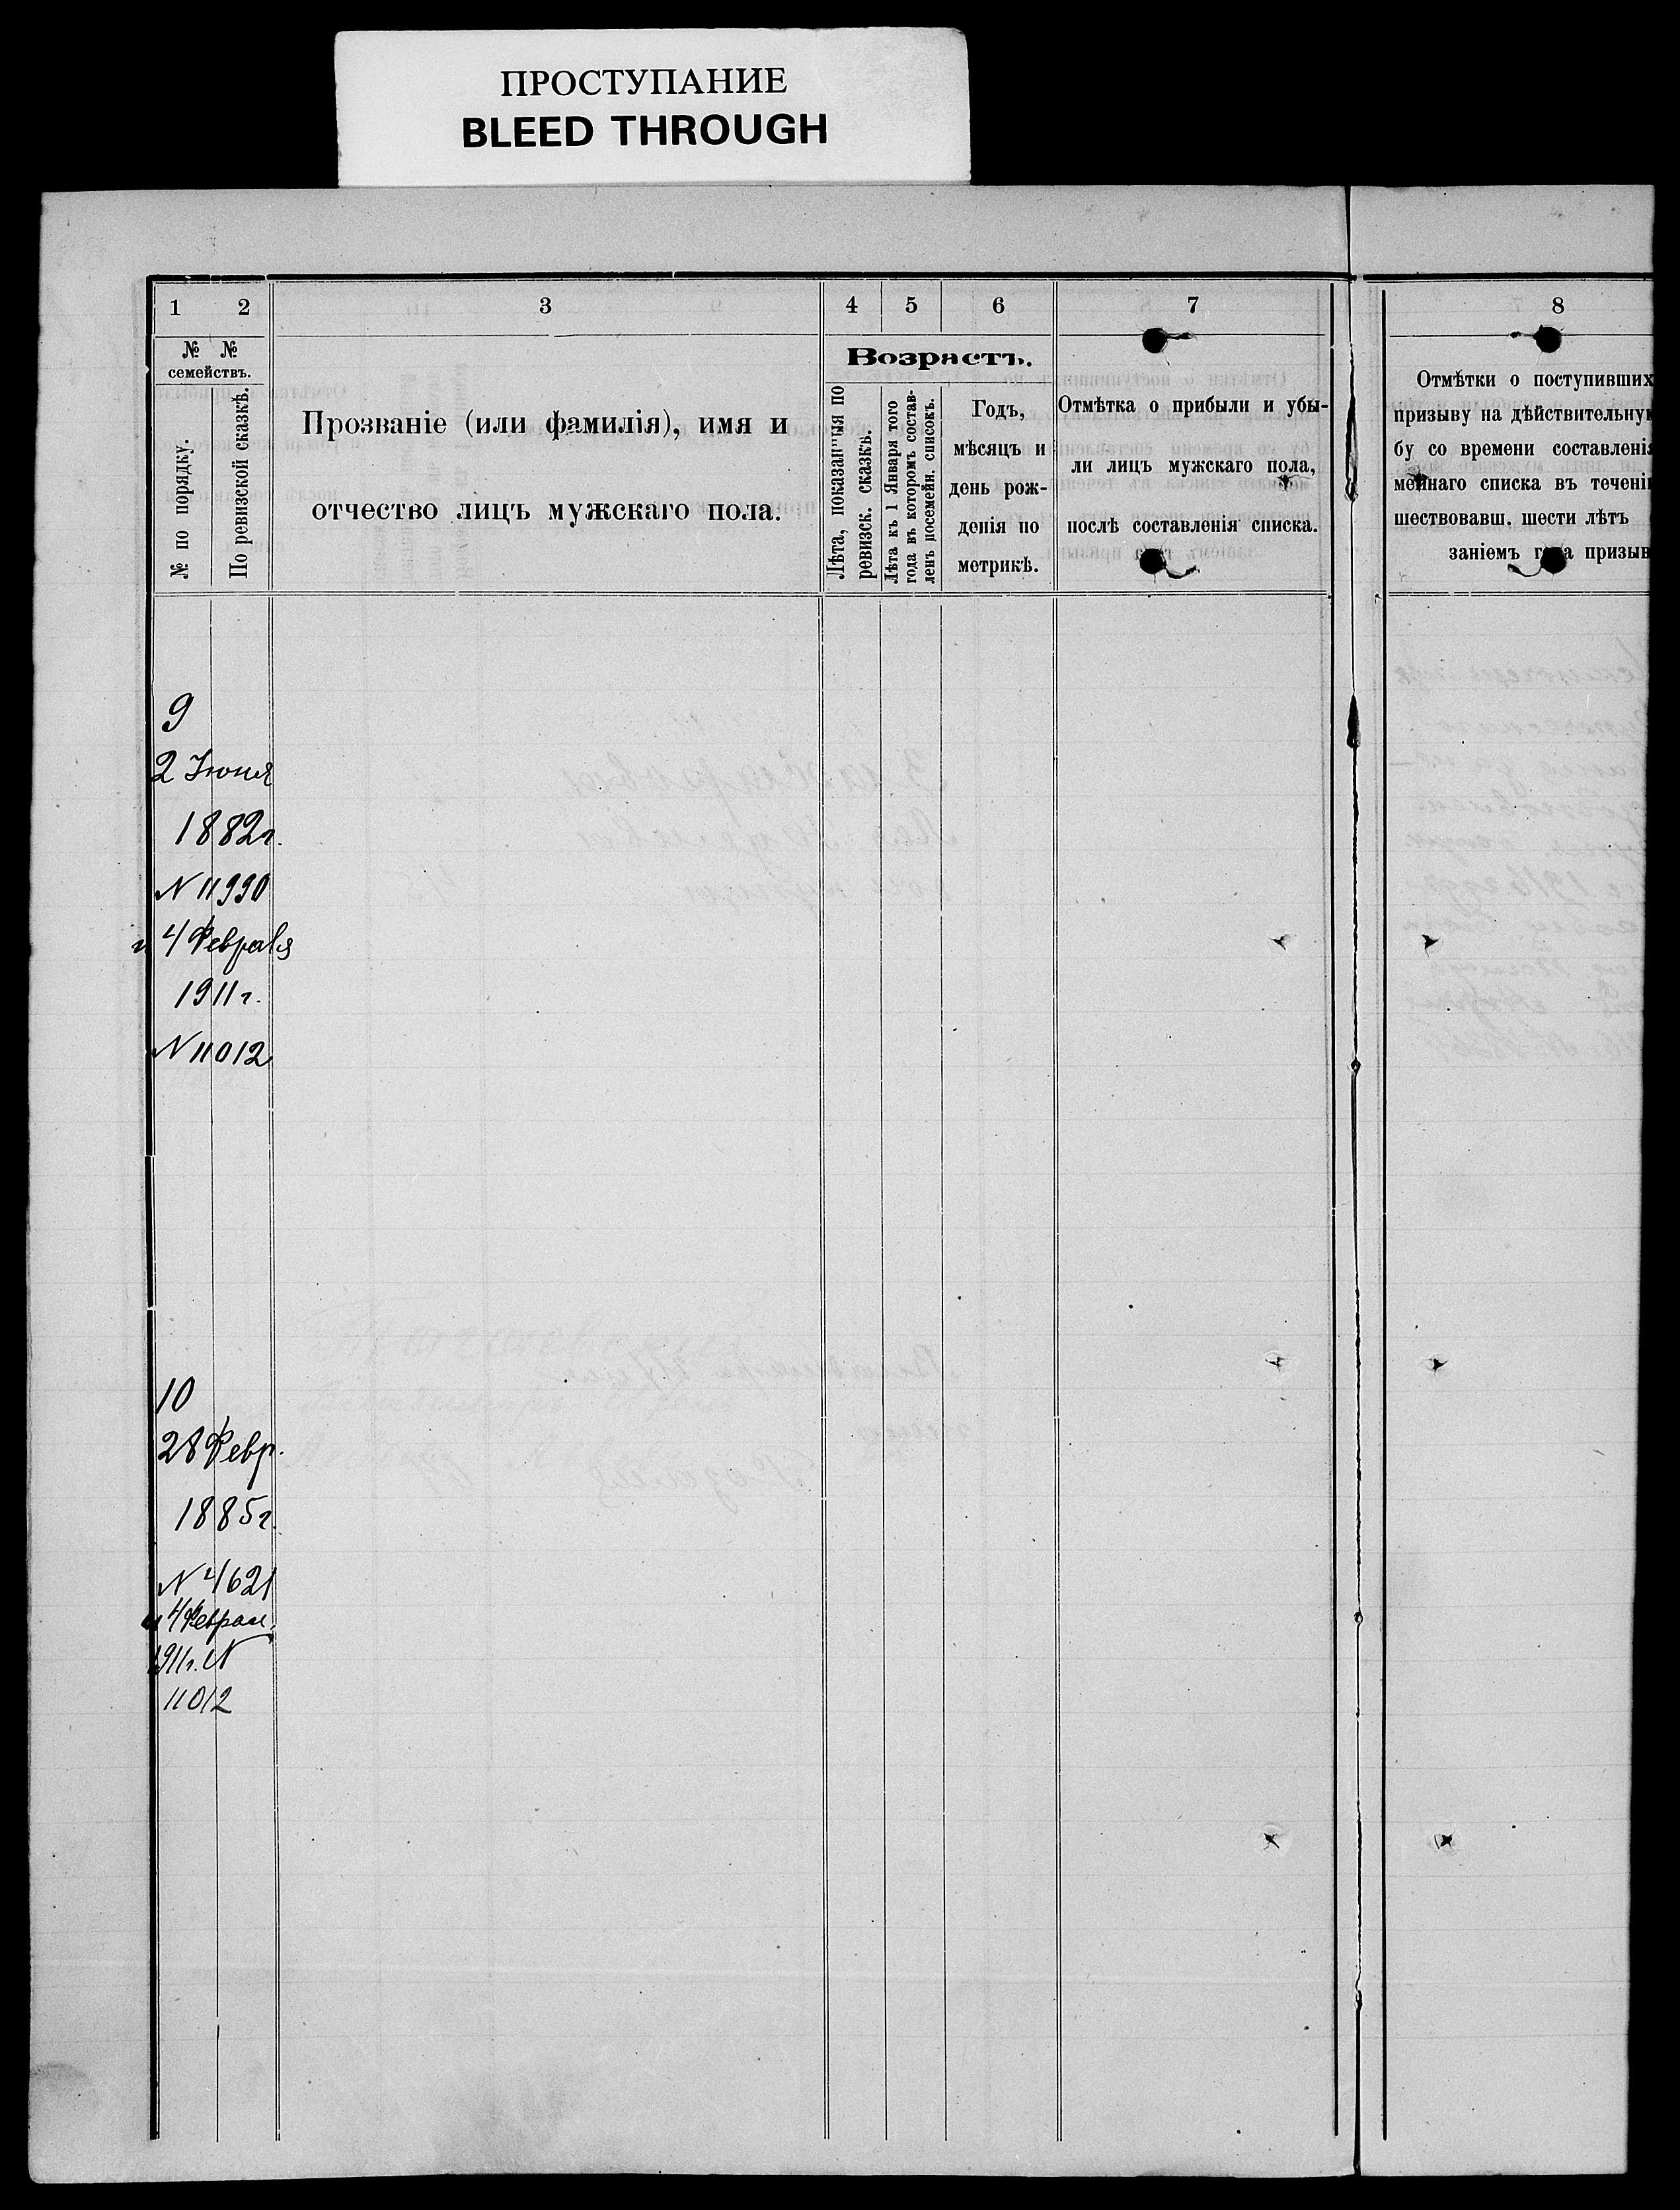 ПРОСТУПАНИЕ
BLEED THROUGH
1 2 3 4 5 6 7 8
№ № семействъ.
№ по порядку.
По ревизской сказкѣ.
Прозваніе (или фамилія), имя и
отчество лицъ мужскаго пола.
Возрастъ.
Лѣта, показанныя по
ревизск. сказкѣ.
Лѣта къ 1 Января того
года въ которомъ состав-
ленъ посемейн. списокъ.
Годъ,
мѣсяцъ и
день рож-
денія по
метрикѣ.
Отмѣтка о прибыли и убы-
ли лицъ мужскаго пола,
послѣ составленія списка.
Отмѣтки о поступивших
призыву на дѣйствительну
бу со времени составлені
мейнаго списка въ течені
шествовавш. шести лѣтъ
заніемъ года призыв
9
2 Іюня
1882г.
N 11990
и 4 Февраля
1911г.
N 11012
10
28 Февр.
1885г.
N 4621
и 4 Феврал.
1911г. N
11012